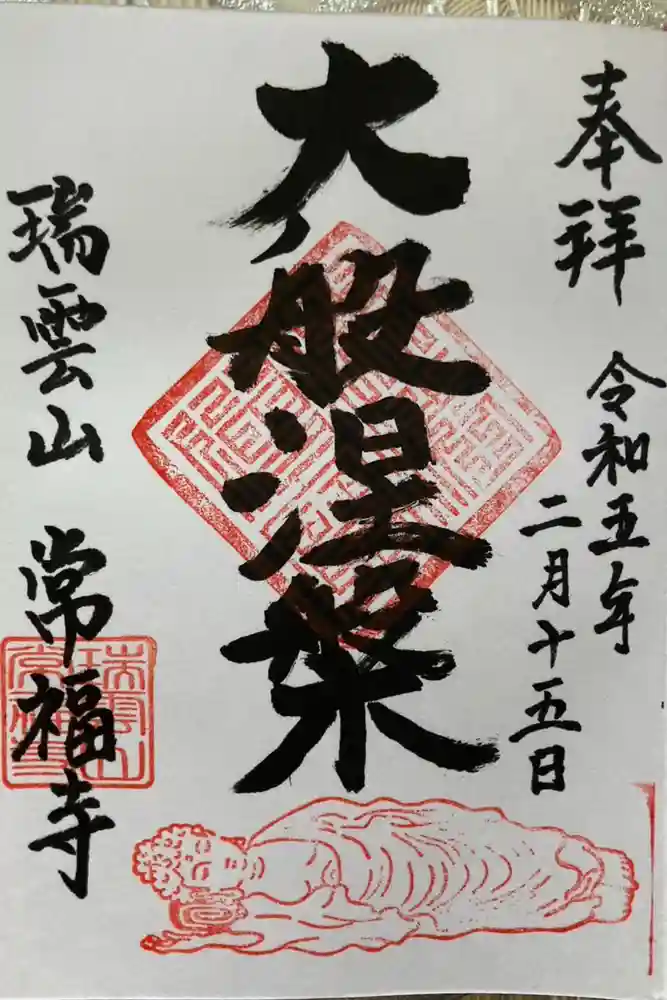 奉拝
令和五年
二月十五日
大般涅槃
瑞雲山 常福寺
瑞雲山
常福寺